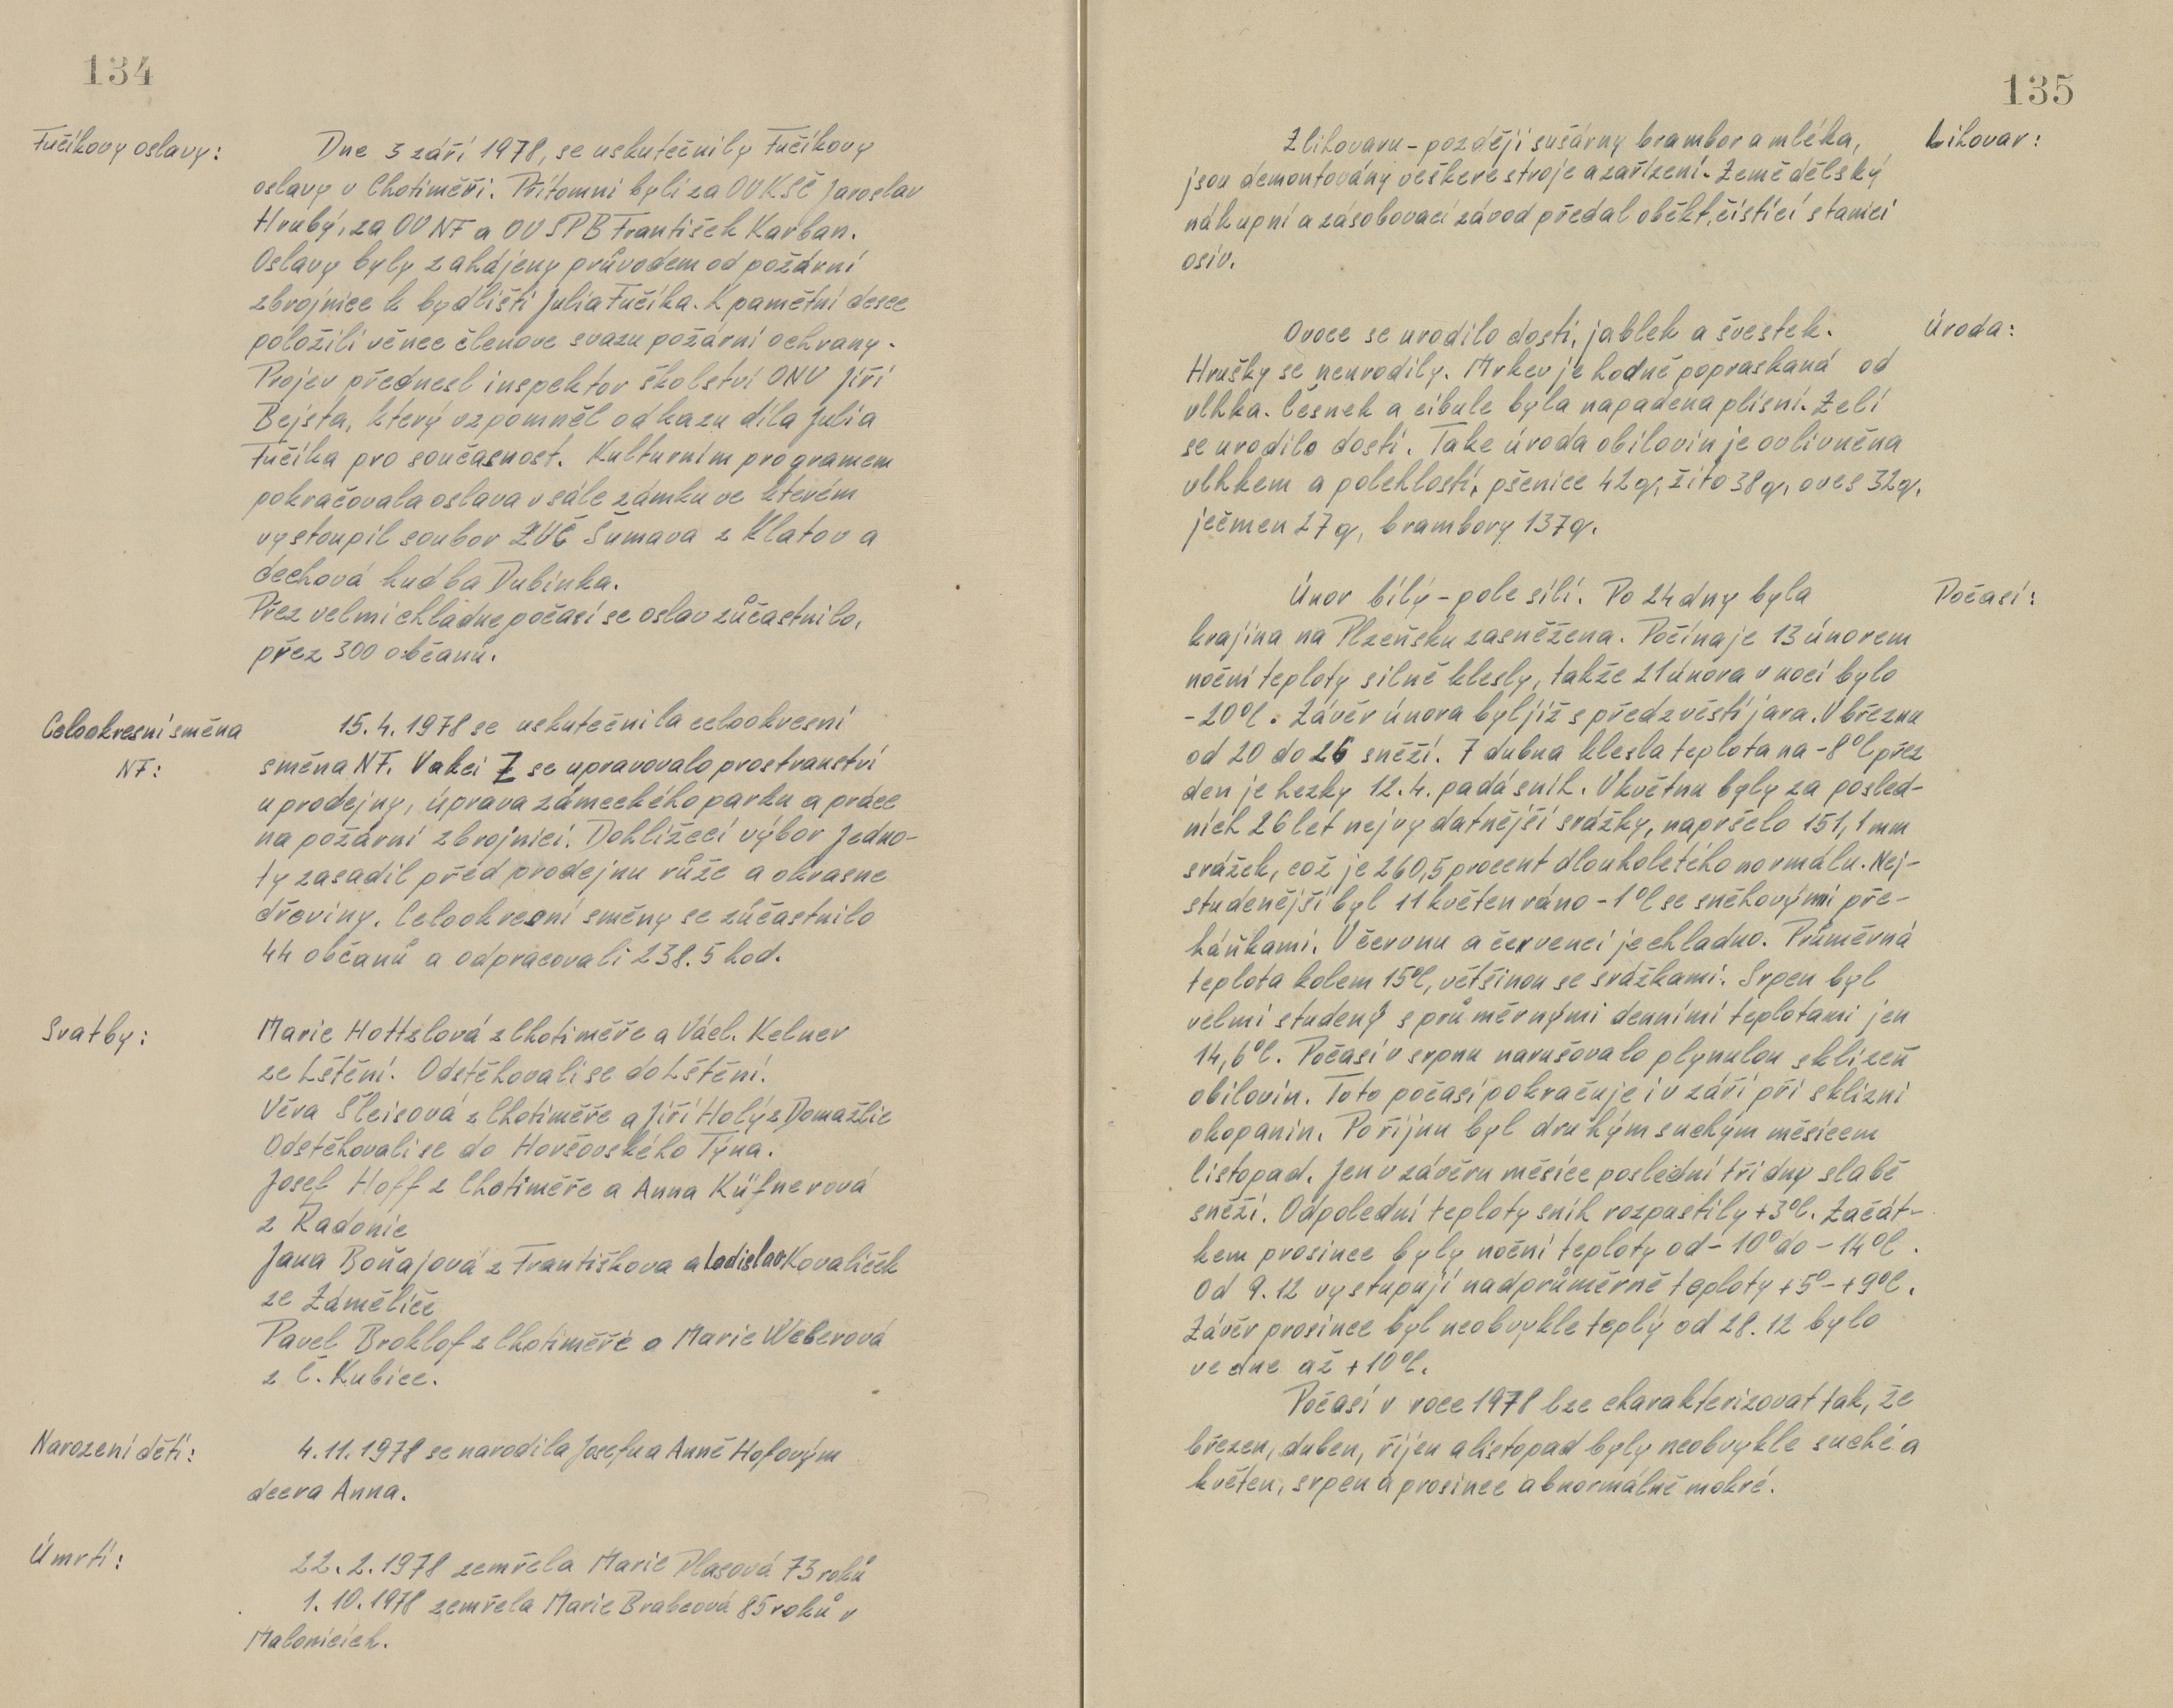 134
Fučíkovy oslavy:
Dne 3 září 1978, se uskutečnily Fučíkovy
oslavy v Chotiměři. Přítomni byli za OV KSČ Jaroslav
Hrubý, za OV NF a OV SPB František Karban.
Oslavy byly zahájeny průvodem od požární
zbrojnice k bydlišti Julia Fučíka. K pamětní desce
položili věnce členove svazu požární ochrany.
Projev přednesl inspektor školství ONV Jiří
Bejsta, který vzpomněl odkazu díla Julia
Fučíka pro současnost. Kulturním programem
pokračovala oslava v sále zámku ve kterém
vystoupil soubor ZUČ Šumava z Klatov a
dechová hudba Dubinka.
Přez velmi chladne počasí se oslav zůčastnilo,
přez 300 občanů.
Celookresní směna
NF:
15.4.1978 se uskutečnila celookresní
směna NF. V akci Z se upravovalo prostranství
u prodejny, úprava zámeckého parku a práce
na požární zbrojnici. Dohlížecí výbor Jedno-
ty zasadil před prodejnu růže a okrasne
dřeviny. Celookresní směny se zůčastnilo
44 občanů a odpracovali 238.5 hod.
Svatby:
Marie Hottzlová z Chotiměře a Václ. Kelner
ze Lštění. Odstěhovali se do Lštění.
Věra Šleisová z Chotiměře a Jiří Holý z Domažlic
Odstěhovali se do Horšovského Týna.
Josef Hoff z Chotiměře a Anna Küfnerová
z Radonic
Jana Boňajová z Františkova a Ladislav Kovalíček
ze Zámělíče
Pavel Broklof z Chotiměře a Marie Weberová
z Č. Kubice.
Narození dětí:
4.11.1978 se narodila Josefu a Anně Hofovým
dcera Anna.
Úmrtí:
22.2.1978 zemřela Marie Plasová 73 roků
1.10.1978 zemřela Marie Brabcová 85 roků v
Malonicích.
135
Lihovar:
Z lihovaru - později sušárny brambor a mléka,
jsou demontovány veškere stroje a zařízení. Zemědělský
nákupní a zásobovací závod předal oběkt, čistící stanici
osiv.
Úroda:
Ovoce se urodilo dosti, jablek a švestek.
Hrušky se neurodily. Mrkev je hodně popraskaná od
vlhka. Česnek a cibule byla napadena plísní. Zelí
se urodilo dosti. Take úroda obilovin je ovlivněna
vlhkem a polehlostí, pšenice 42 q, žito 38 q, oves 32 q,
ječmen 27 q, brambory 137 q.
Počasí:
Únor bílý - pole sílí. Po 24 dny byla
krajina na Plzeňsku zasněžena. Počínaje 13 únorem
noční teploty silně klesly, takže 21 února v noci bylo
-20°C. Závěr února byl již s předzvěstí jara. V březnu
od 20 do 26 sněží. 7 dubna klesla teplota na -8°C přez
den je hezky 12.4. padá sníh. V květnu byly za posled-
ních 26 let nejvydatnější srážky, napršelo 151,1 mm
srážek, což je 260,5 procent dlouholetého normálu. Nej-
studenější byl 11 květen ráno -1°C se sněhovými pře-
háňkami. V červnu a červenci je chladno. Průměrná
teplota kolem 15°C, většinou se srážkami. Srpen byl
velmi studený s průměrnými denními teplotami jen
14,6°C. Počasí v srpnu narušovalo plynulou sklizeň
obilovin. Toto počasí pokračuje i v září při sklizni
okopanin. Po říjnu byl druhým suchým měsícem
listopad. Jen v závěru měsíce poslední tři dny slabě
sněží. Odpolední teploty sníh rozpustily +3°C. Začát-
kem prosince byly noční teploty od -10° do -14°C.
Od 9.12 vystupují nadprůměrně teploty +5°- +9°C.
Závěr prosince byl neobvykle teplý od 28.12 bylo
ve dne až +10°C.
Počasí v roce 1978 lze charakterizovat tak, že
březen, duben, říjen a listopad byly neobvykle suché a
květen, srpen a prosinec abnormálně mokré.